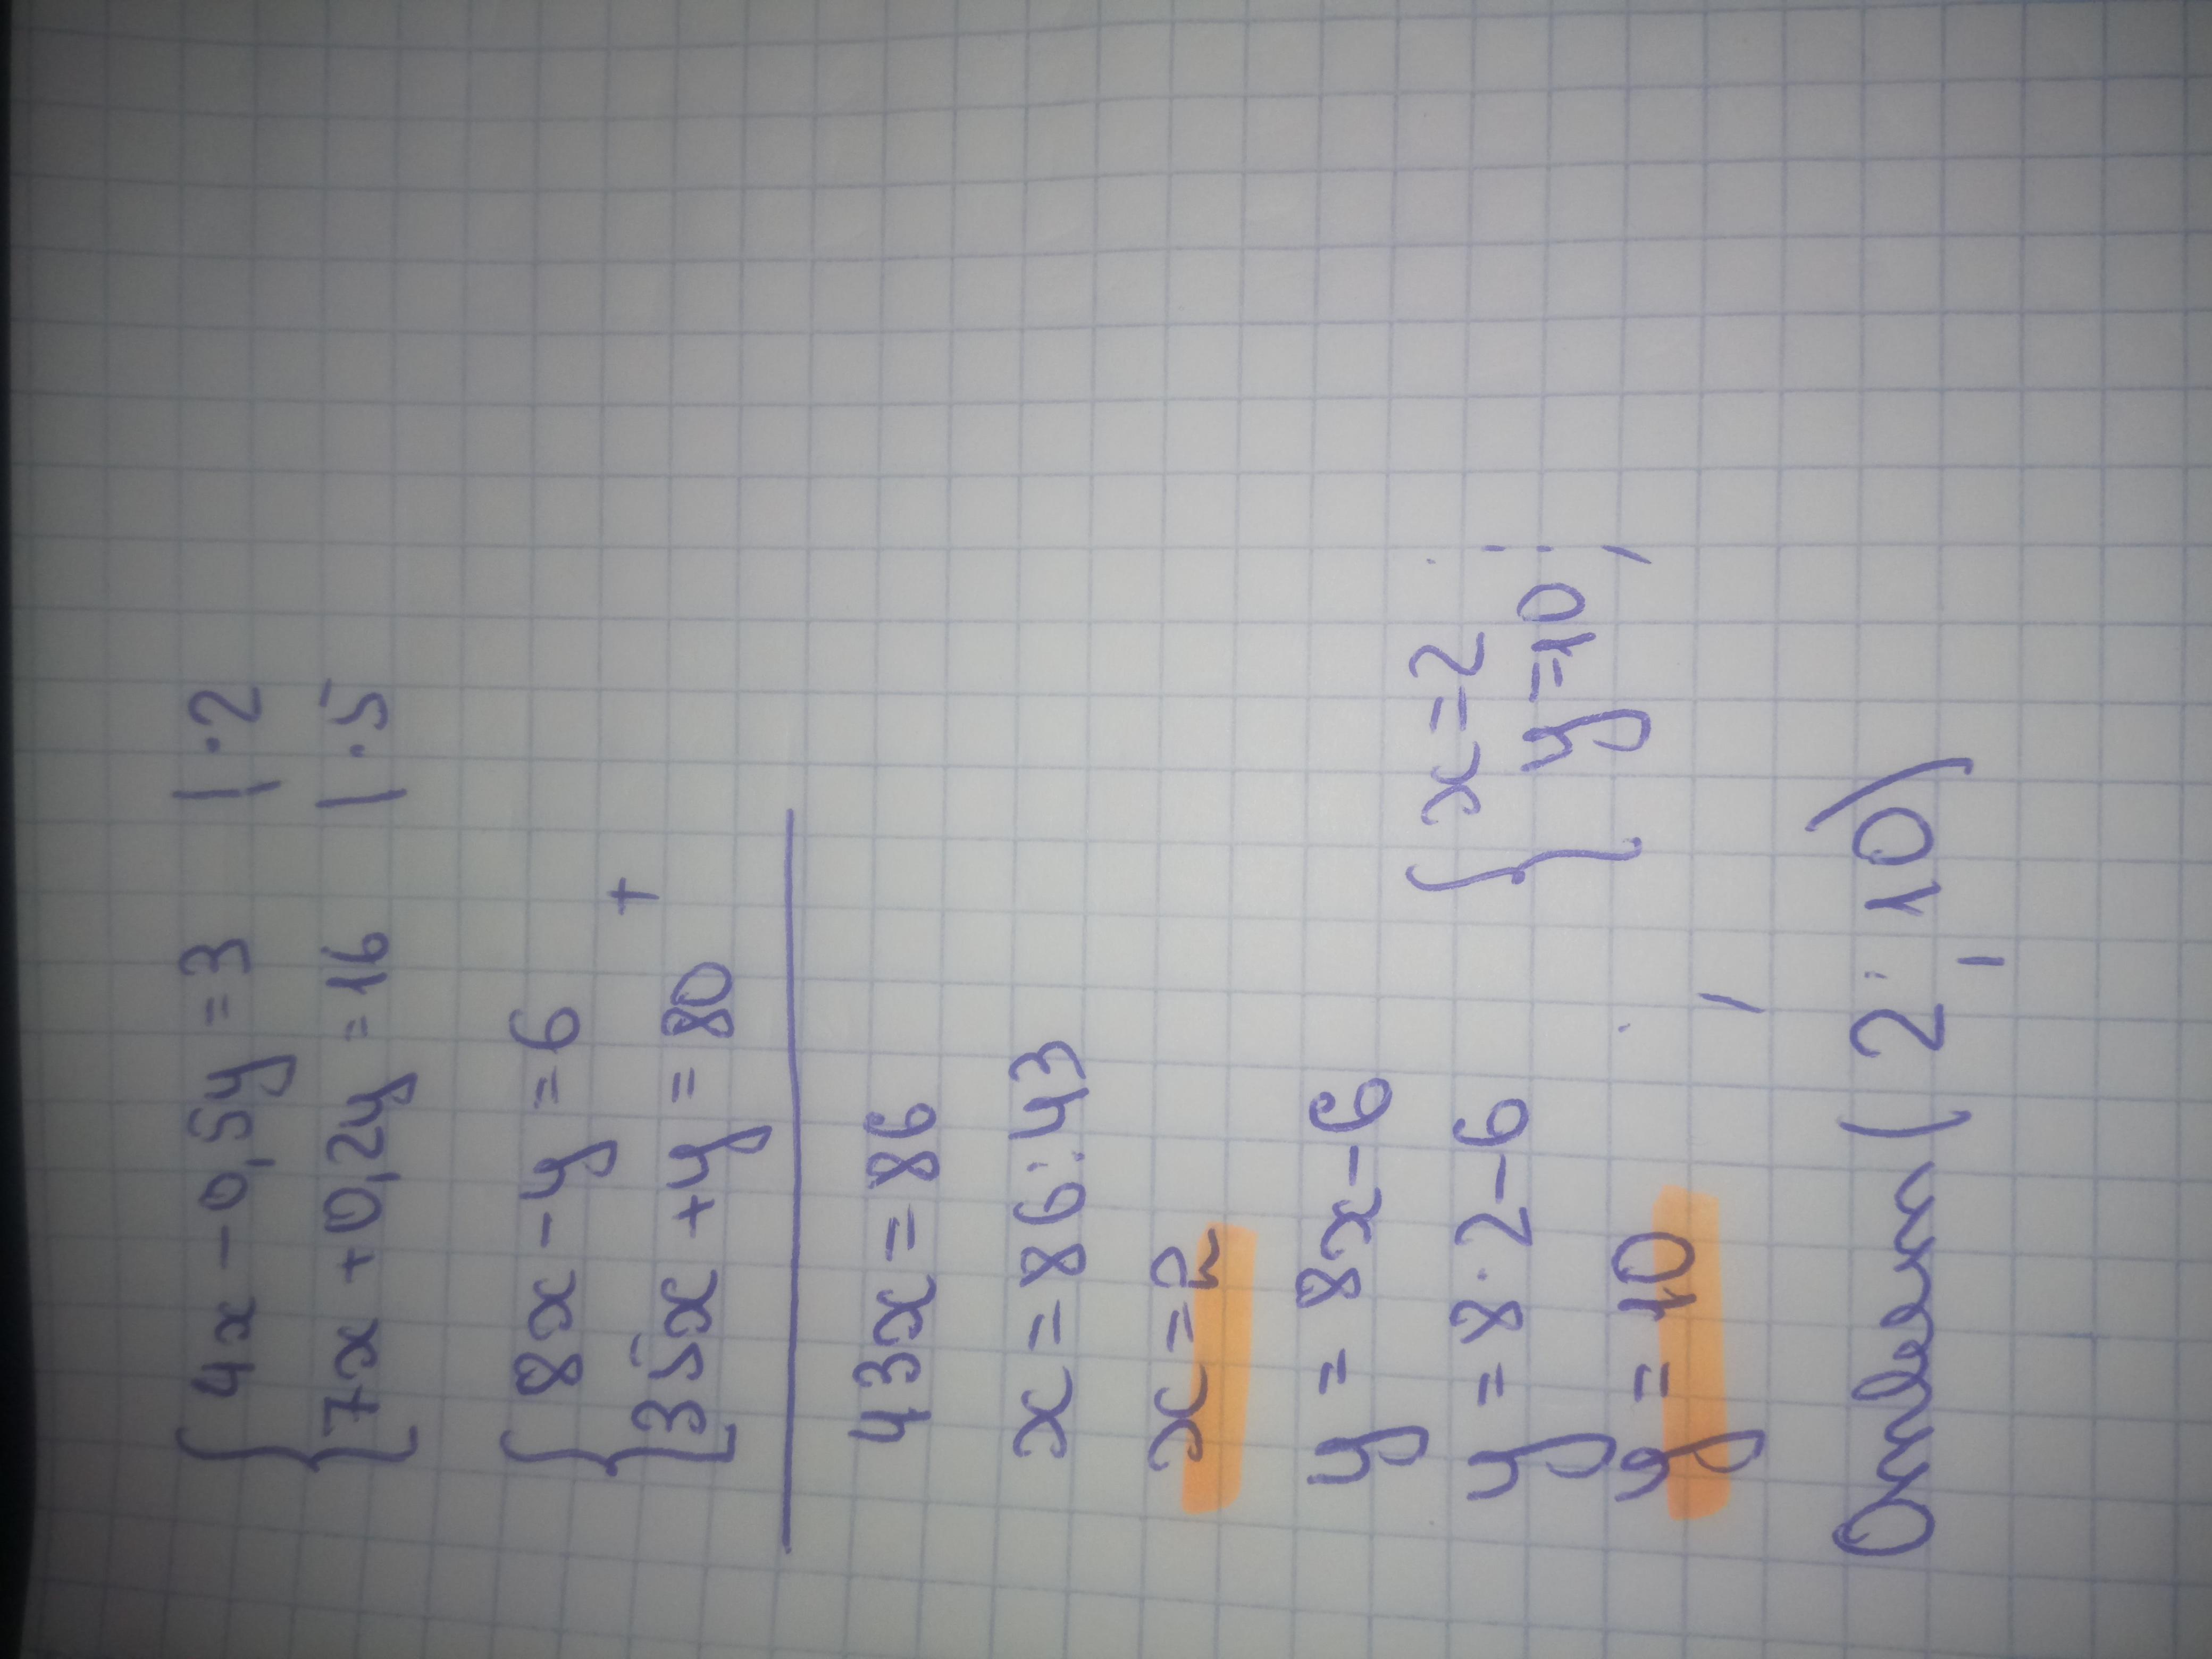 { 4x - 0,5y = 3 | · 2
{ 7x + 0,2y = 16 | · 5
{ 8x - y = 6
+
{ 35x + y = 80
43x = 86
x = 86 : 43
x = 2
y = 8x - 6
y = 8 · 2 - 6
y = 10
{ x = 2
{ y = 10;
Ответ (2; 10)